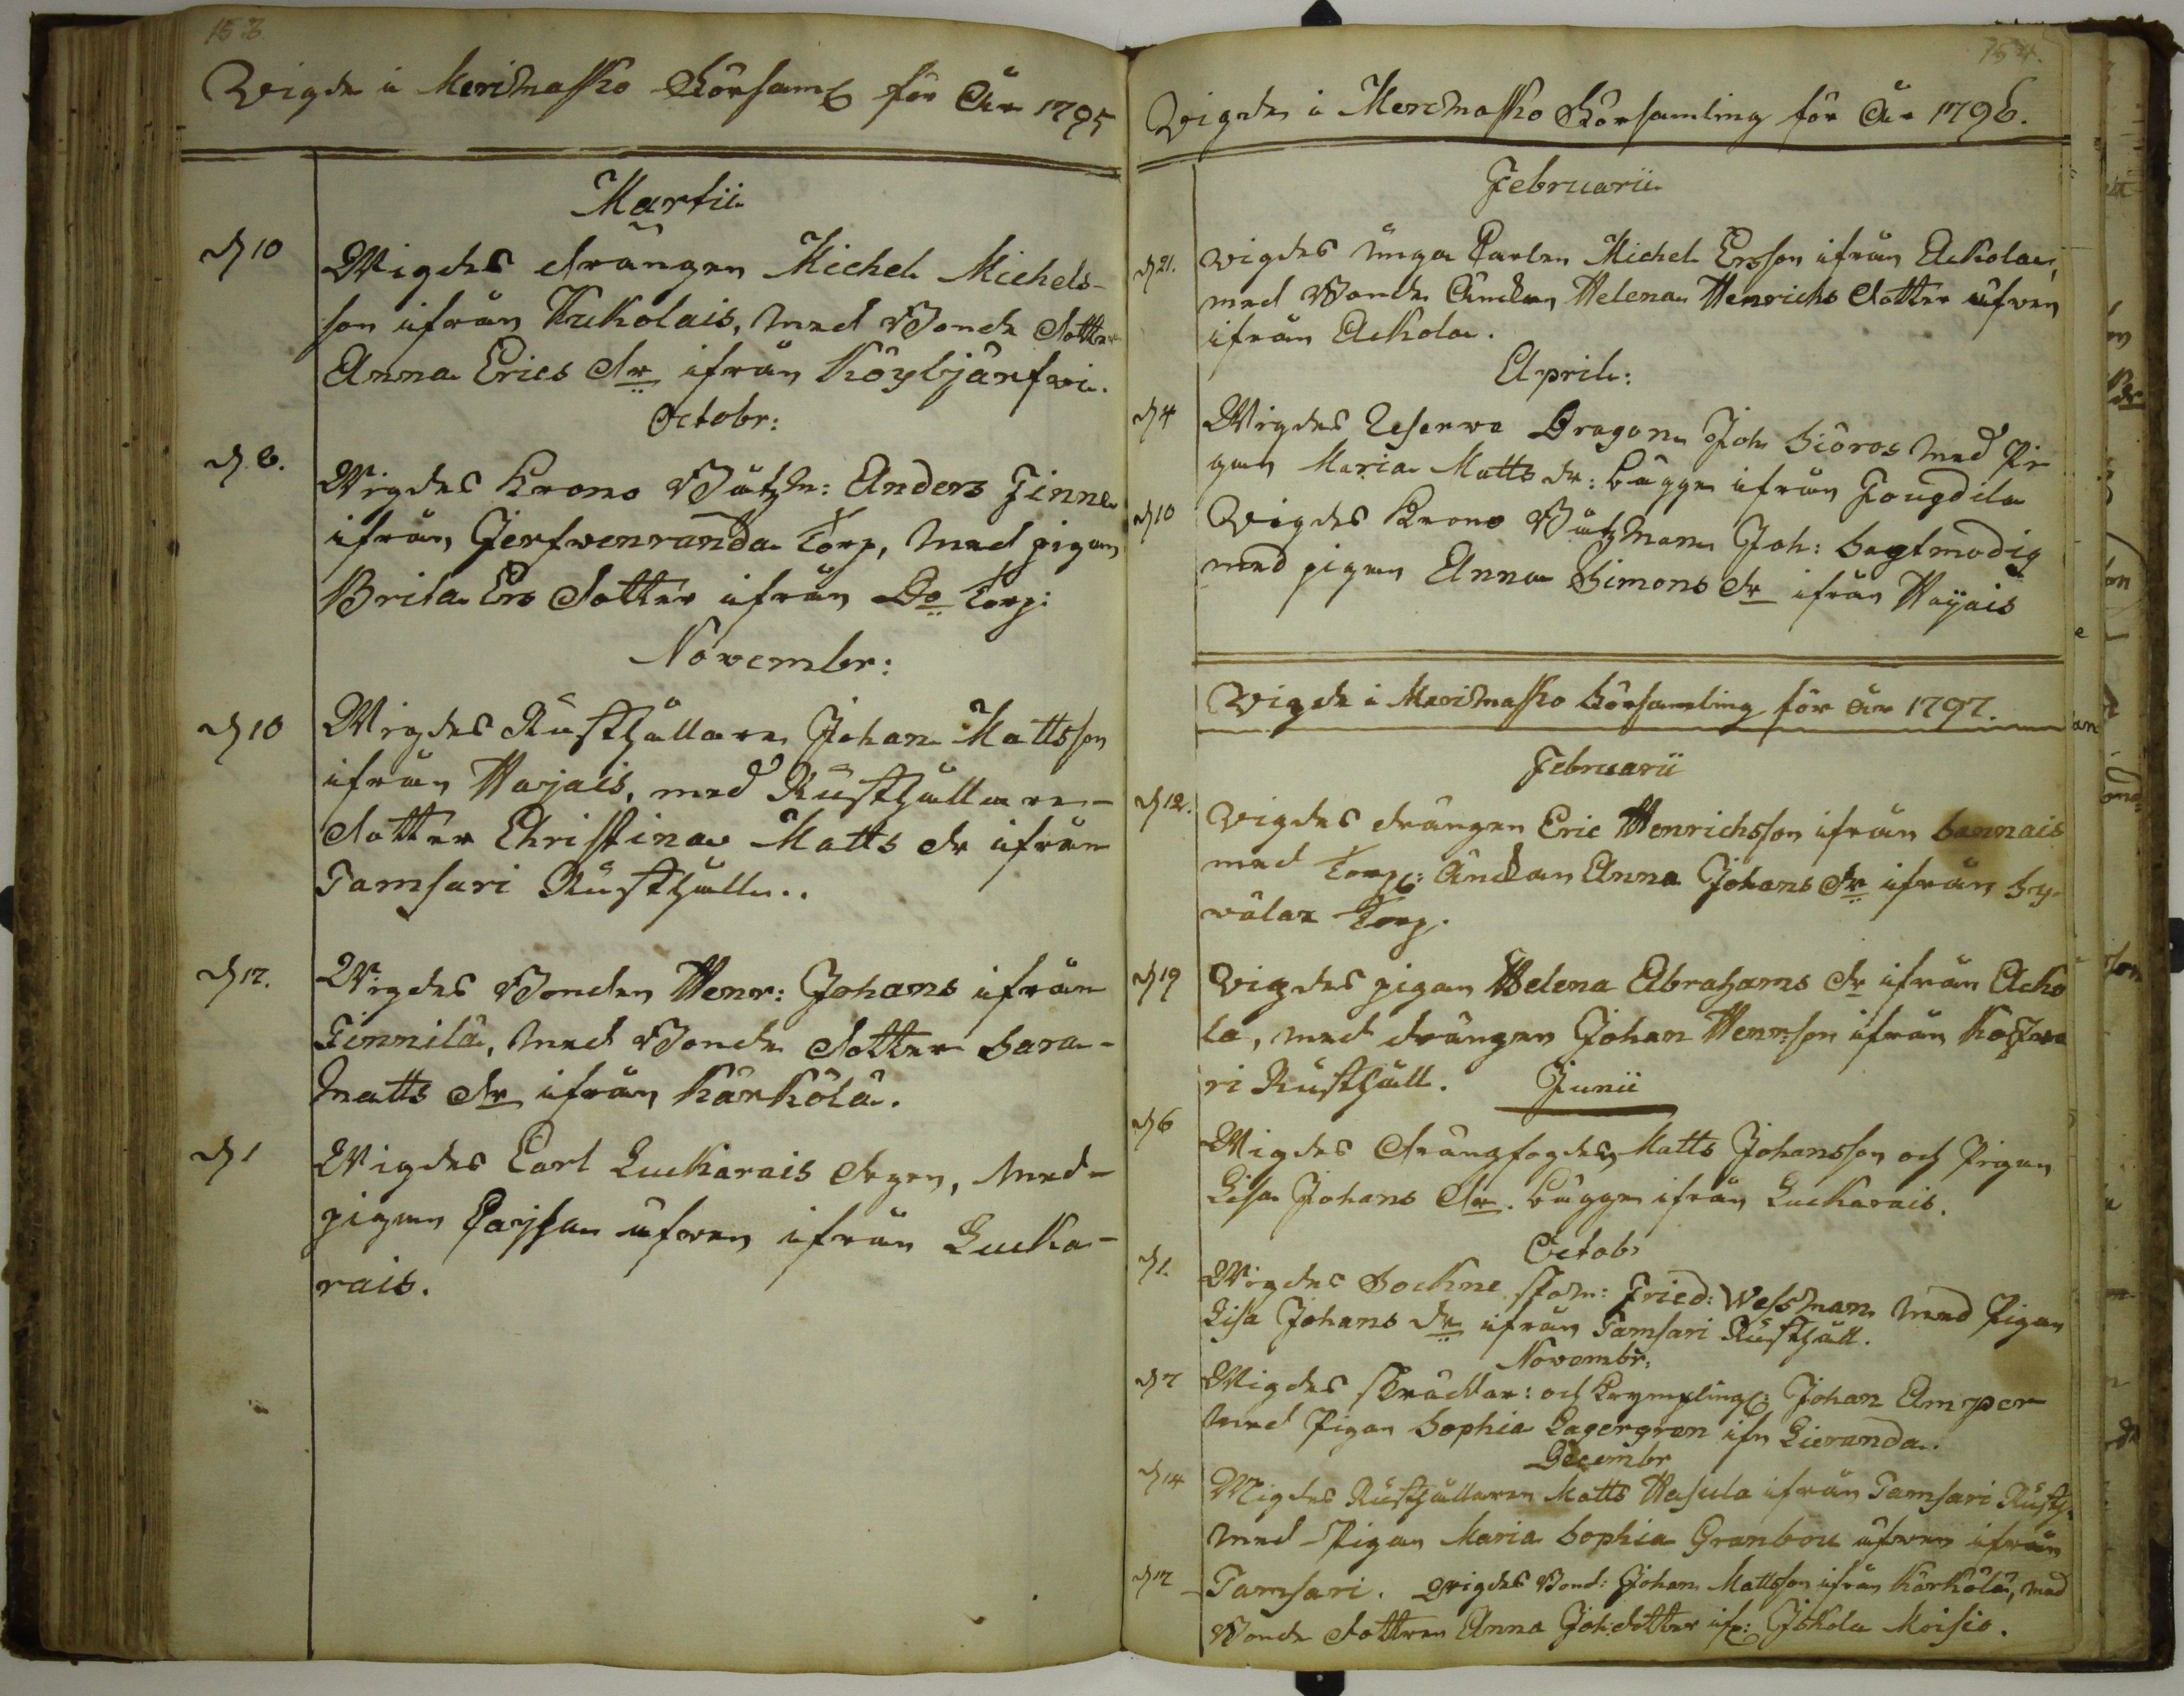 153.
Vigde i Merimasko Församl: för År 1795
Martii
d 10 Wigdes drängen Michel Michels-
son ifrån Kukolais, med Bonde dotter
Anna Erics dr ifrån Köyljärfwi.
Octobr:
d 6. Wigdes Krono Båtzm: Anders Finne
ifrån Jerfwenranda Torp, med pigan
Brita Ers dotter ifrån Do Torp:
Novembr:
d 10 Wigdes Rusthållaren Johan Mattsson
ifrån Warjais, med Rusthållare-
dotter Christina Matts dr ifrån
Tamsari Rusthåll..
d 12. Wigdes Bonden Henr: Johans ifrån
Finnilä, med Bonde dotter Sara
Matts dr ifrån Kärkölä.
d 1 Wigdes Carl Luckarais drgen, med
pigan Cajsa äfwen ifrån Lucka-
rais.
154.
Vigde i Merimasko Församling för År 1796.
Februarii
d 21. Vigdes unga Carlen Michel Ersson ifrån Ackola,
med Bonde Änckan Helena Henrichs dotter äfwen
ifrån Ackola.
April:
d 4 Wigdes Reserve Dragon Joh Sioros med Pi
gan Maria Matts dr: bägge ifrån Fougdila
d 10 Vigdes Krono Båtzman Joh: Sagtmodig
med pigan Anna Simons dr ifrån Wayais
Vigde i Merimasko Församling för År 1797.
Februarii
d 12. Vigdes drängen Eric Henrichsson ifrån Sannais
med Torp: Änckan Anna Johans dr ifrån Sy-
wälax Torp.
d 19 Vigdes pigan Helena Abrahams dr ifrån Acko
la, med drängen Johan Henr:son ifrån
ri Rusthåll. Junii
d 6 Wigdes Drängfogden Matts Johansson och Pigan
Lisa Johans dr. bägge ifrån Luckarais.
Octob:
d 1. Wigdes Sockne skom: Fried: Wessman med Pigan
Lisa Johans dr ifrån Tamsari Rusthåll.
Novembr.
d 7 Wigdes Skräddar: och Krympling: Johan Amper
med Pigan Sophia Lagergren ifn Lieranda.
Decembr
d 14 Wigdes Rusthållaren Matts Hasula ifrån Tamsari Rusth:
med Pigan Maria Sophia Granbou äfwen ifrån
d 12 Tamsari. Wigdes Bond: Johan Mattsson ifrån Kärkölä, med
Bonde dottren Anna Joh:dotter ifr: Jokola Moisio.